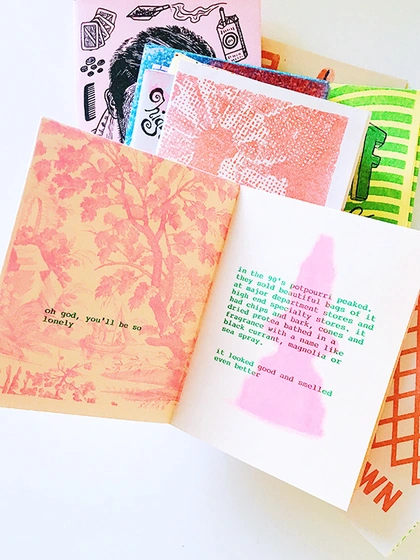 oh god, you'll be so
lonely
in the 90's potpourri peaked.
they sold beautiful bags of it
at major department stores and
high end specialty stores. it
had chips and bark, cones and
dried protea bathed in a
fragrance with a name like
black currant, magnolia or
sea spray.
it looked good and smelled
even better
WN